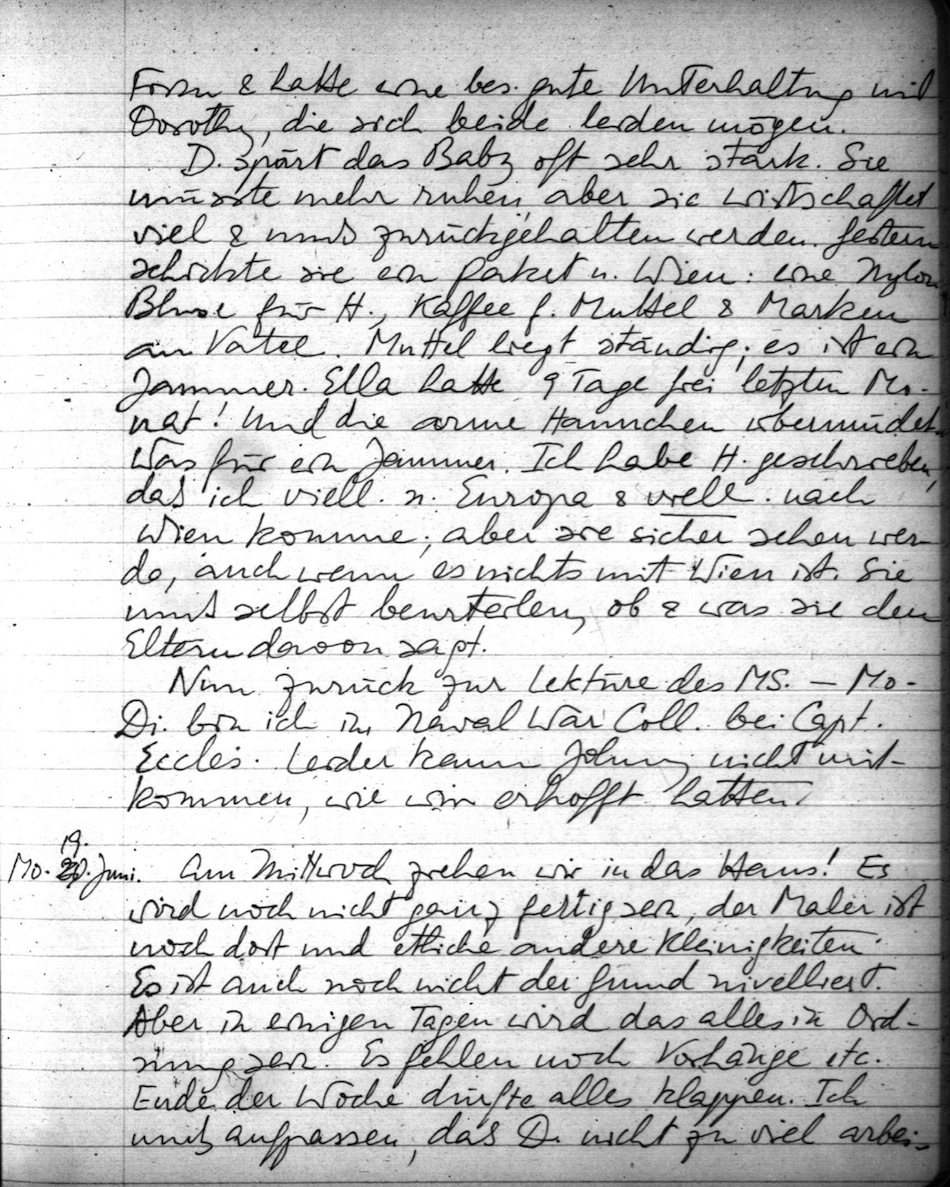 Form & hatte eine bes. gute Unterhaltung mit
Dorothy, die sich beide leiden mögen.
D. spürt das Baby oft sehr stark. Sie
müsste mehr ruhen, aber sie wirtschaftet
viel & muß zurückgehalten werden. Gestern
schickte sie ein Paket n. Wien: eine Nylon
Bluse für H., Kaffee f. Muttel & Marken
an Vatel. Muttel liegt ständig; es ist ein
Jammer. Ella hatte 9 Tage frei letzten Mo-
nat! Und die arme Hannchen übermüdet.
Was für ein Jammer. Ich habe H. geschrieben,
daß ich viell. n. Europa & viell. nach
Wien komme; aber sie sicher sehen wer-
de, auch wenn es nichts mit Wien ist. Sie
muß selbst beurteilen, ob & was sie den
Eltern davon sagt.
Nun zurück zur Lektüre des MS. — Mo-
Di. bin ich im Naval War Coll. bei Capt.
Eccles. Leider kann Johnny nicht mit-
kommen, wie wir erhofft hatten.
19.
Mo. 20. Juni. Am Mittwoch ziehen wir in das Haus! Es
wird noch nicht ganz fertig sein, der Maler ist
noch dort und etliche andere Kleinigkeiten.
Es ist auch noch nicht der Grund nivelliert.
Aber in einigen Tagen wird das alles in Ord-
nung sein. Es fehlen noch Vorhänge etc.
Ende der Woche dürfte alles klappen. Ich
muß aufpassen, daß D. nicht zu viel arbei-